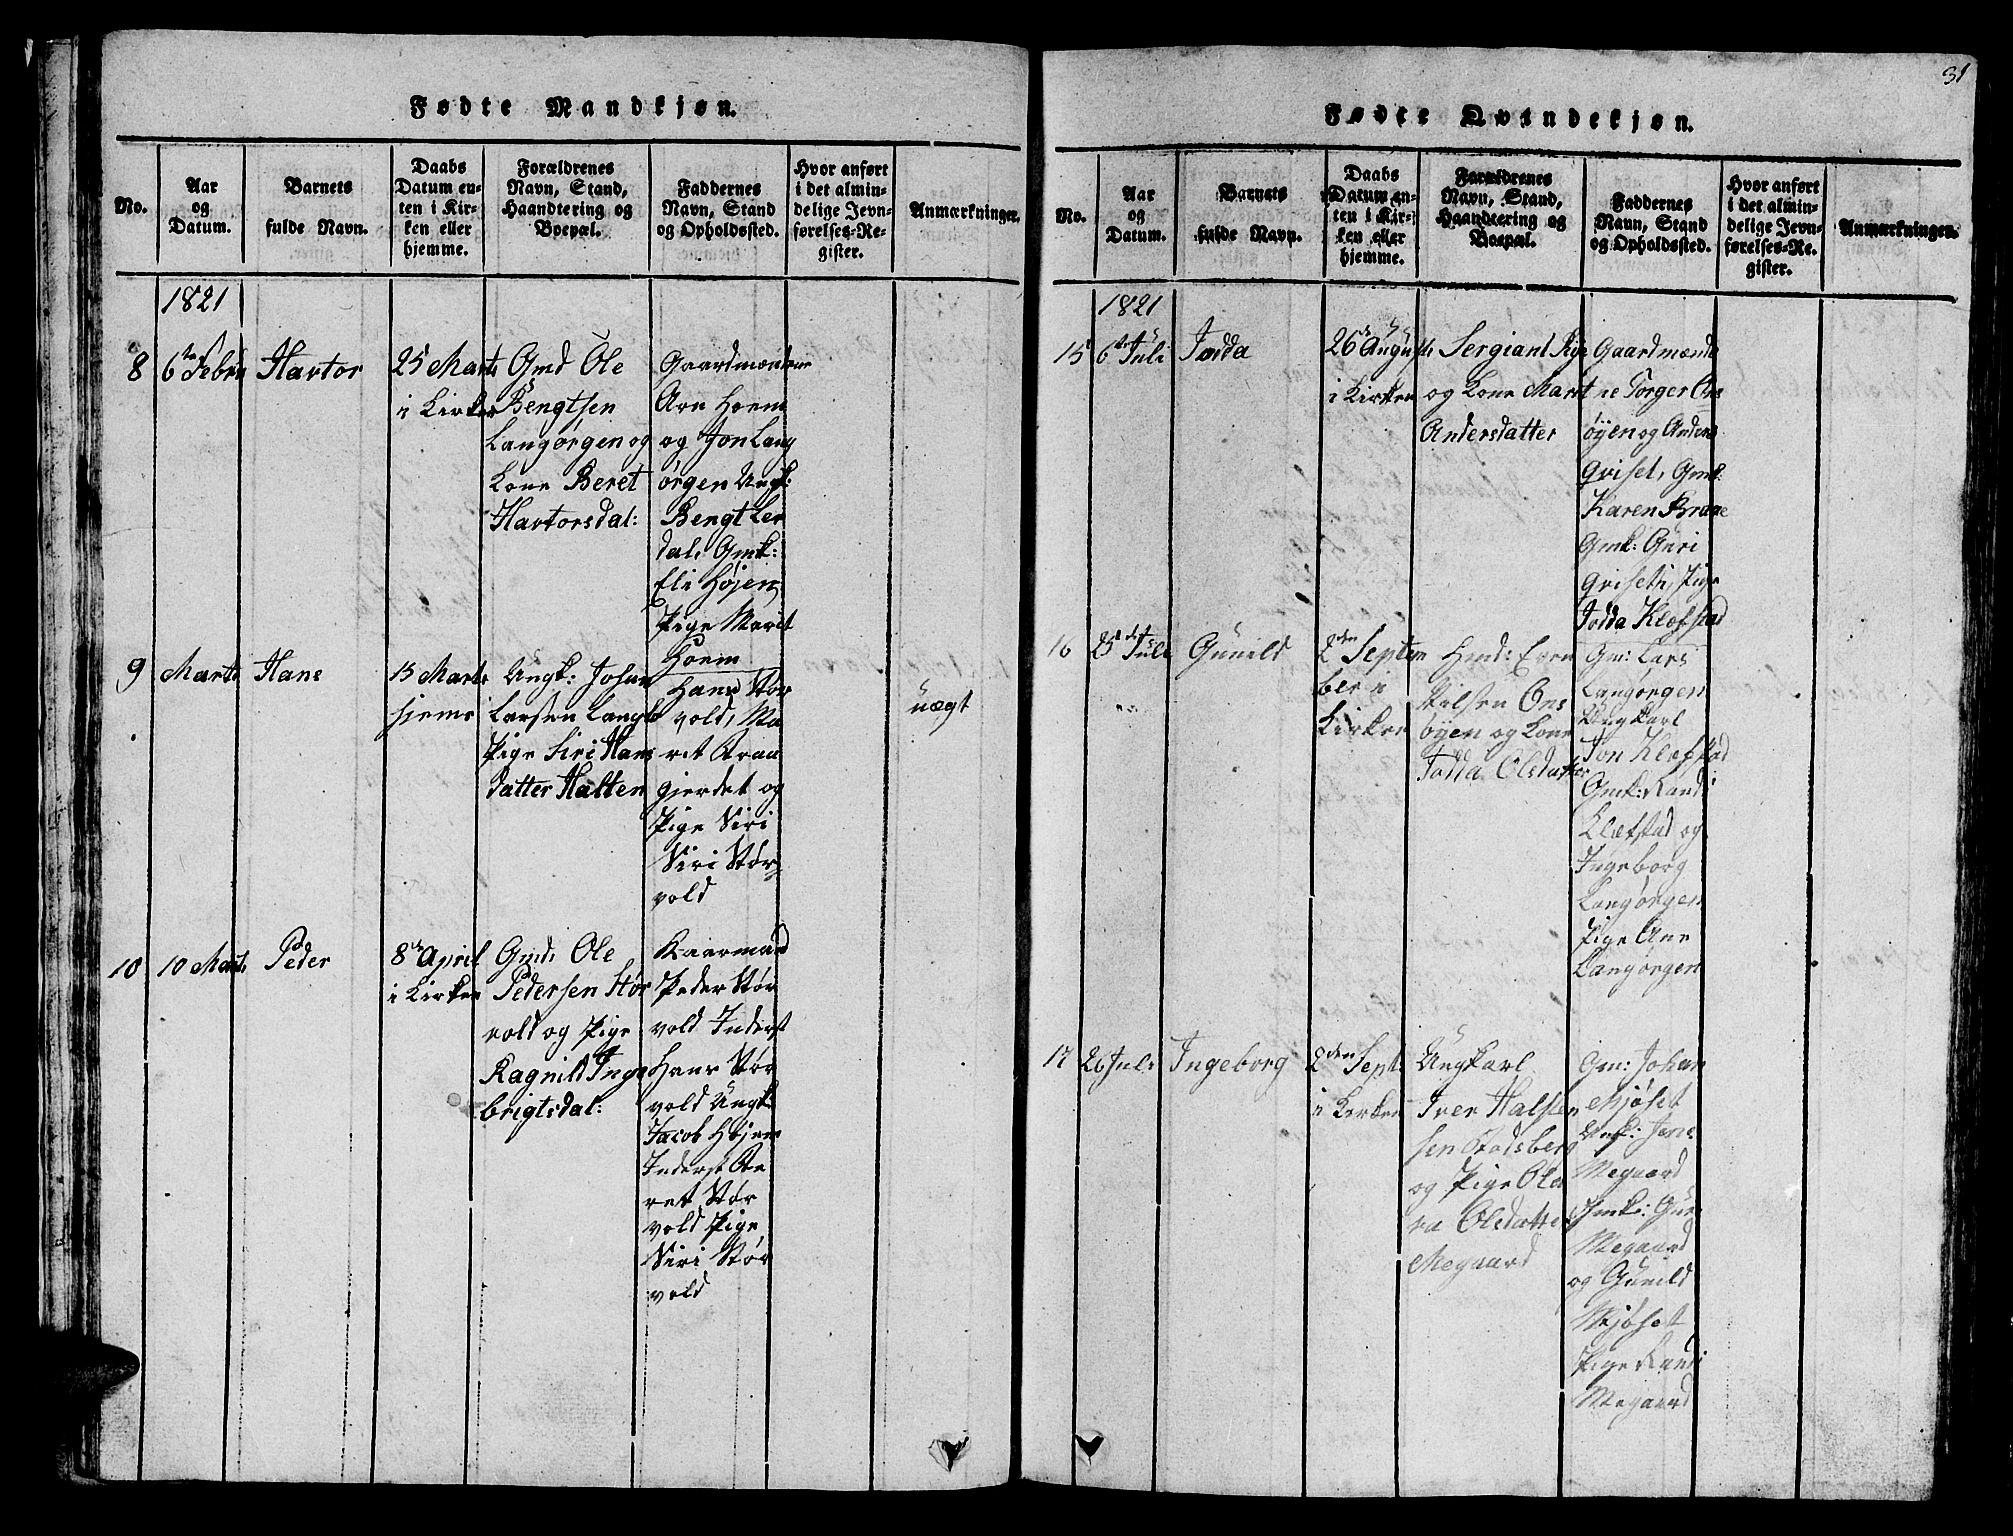 31
Fødte Mandkjøn.
No.
Aar
og
Datum.
Barnets
fulde Navn.
Daabs
Datum en-
ten i Kir-
ken eller
hjemme.
Forældrenes
Navn, Stand,
Haandtering og
Boepæl.
Faddernes
Navn, Stand
og Opholdssted.
Hvor anført
i det almin-
delige Jevn-
førelses-Re-
gister.
Anmærkninger.
1821
8
6te Febru
Havtor
25 Marts
i Kirken
Gmd Ole
Bengtsen
Langørgen og
Kone Beret
Havtorsdal:
Gaardmændene
Arn Hoem
og Jon Lang
ørgen Ungk:
Bengt Ler
dal, Gmk:
Eli Højen
Pige Marit
Hoem
9
Marts
Hans
13 Marts
hjeme
Ungk: Johan
Larsen Langlo
Pige Siri Hans
datter Halten
Hans Stør
vold, Ma
rit Krau
gjerdet og
Pige Siri
Siri Stør
vold
uægt
10
10 Marts
Peder
8de April
i Kirken
Gmd, Ole
Pedersen Stør
vold og Pige
Ragnild Inge
brigtsdal:
Kaarmand
Peder Stør
vold Inderst
Hans Stør
vold Ungk:
Jacob Højen
Inderst Be
ret Stør
vold Pige
Siri Stør
vold
Fødte Qvindekjøn.
No.
Aar
og
Datum.
Barnets
fulde Navn.
Daabs
Datum en-
ten i Kir-
ken eller
hjemme.
Forældrenes
Navn, Stand,
Haandtering og
Boepæl.
Faddernes
Navn, Stand
og Opholdssted.
Hvor anført
i det almin-
delige Jevn-
førelses-Re-
gister.
Anmærkninger.
1821
15
6te Juli
Jodda
26de August
i Kirken
Sergiant
og Kone Marit
Andersdatter
Gaardmænde
ne Torger Ons
øyen og Anders
Qviset, Gmk:
Karen Braae
Gmk: Guri
Qviseti, Pige
Jodda Klefstad
16
25de Juli
Gunild
2den Septem
ber i
Kirken
Hmd: Even
Nilsen Ons
øyen og Kone
Jodda Olsdatter
Gm: Lars
Langørgen
Ungkarl
Jon Klefstad
Gmk: Randi
Klefstad og
Ingeborg
Langørgen
Pige Ane
Langørgen
17
26 Juli
Ingeborg
2den Sept:
i Kirken
Ungkarl
Iver Halsten
sen Stadsberg
og Pige Ole
va Olsdatter
Megaard
Gm: Johan
Mjøset
Ungk: Jens
Megaard
Gmk: Guri
Megaard
og Gunild
Mjøset
Pige Randi
Megaard